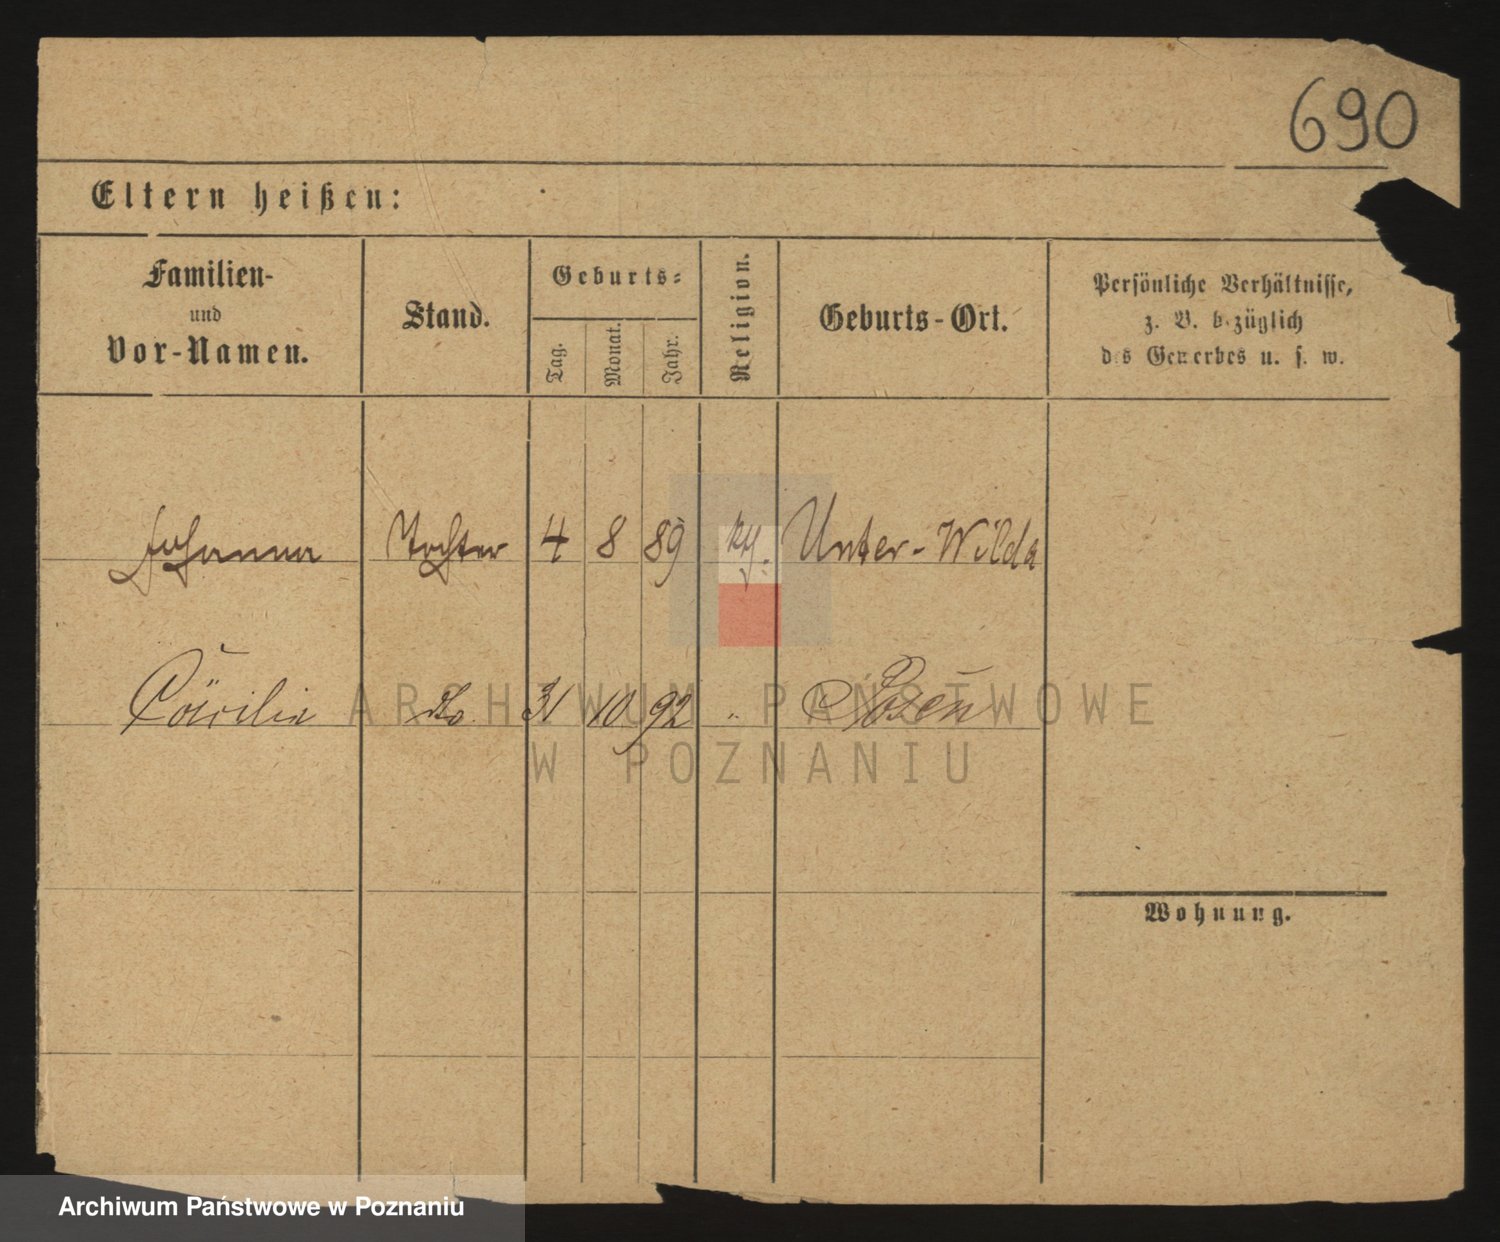 690
Eltern heißen:
Familien-
und
Vor-Namen.
Stand.
Geburts-
Tag.
Monat.
Jahr.
Religion.
Geburts-Ort.
Persönliche Verhältnisse,
z. B. bezüglich
des Gewerbes u. s. w.
Johanna Tochter 4 8 89 Unter-Wilda
Cäcilia do 31 10 92 " Posen
ARCHIWUM PAŃSTWOWE
W POZNANIU
Wohnung.
Archiwum Państwowe w Poznaniu